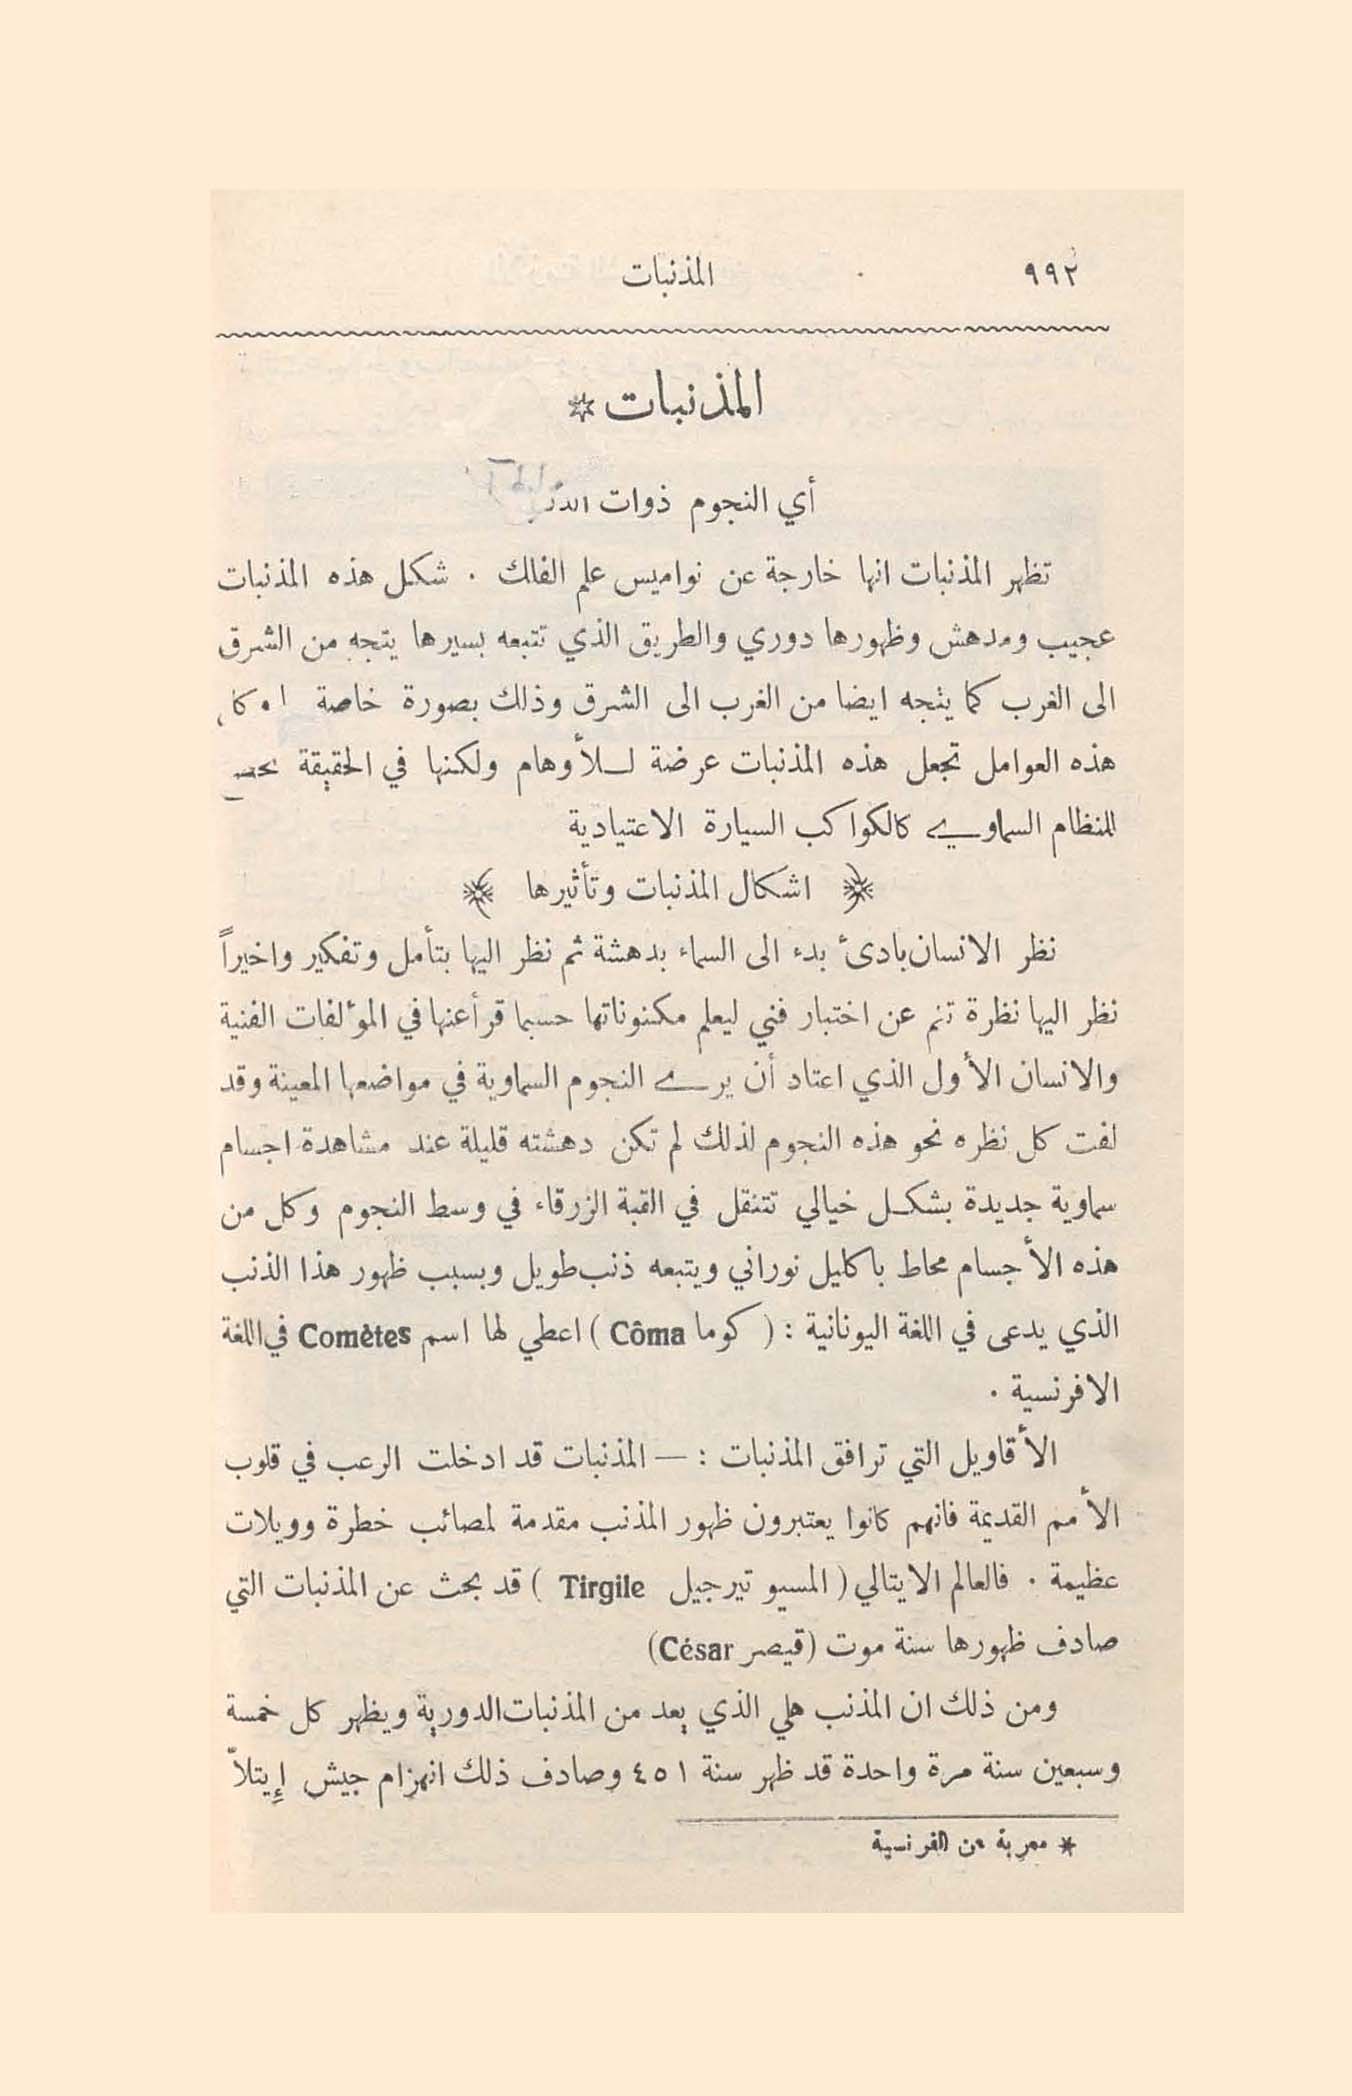 ٩٩٢ المذنبات
المذنبات *
أي النجوم ذوات
تظهر المذنبات انها خارجة عن نواميس علم الفلك . شكل هذه المذنبات
عجيب ومدهش وظهورها دوري والطريق الذي تتبعه بسيرها يتجه من الشرق
الى الغرب كما يتجه ايضا من الغرب الى الشرق وذلك بصورة خاصة
هذه العوامل تجعل هذه المذنبات عرضة للأوهام ولكنها في الحقيقة
للنظام السماوي كالكواكب السيارة الاعتيادية
اشكال المذنبات وتأثيرها
نظر الانسان بادئ بدء الى السماء بدهشة ثم نظر اليها بتأمل وتفكير واخيراً
نظر اليها نظرة تنم عن اختبار فني ليعلم مكنوناتها حسبما قرأ عنها في المؤلفات الفنية
والانسان الأول الذي اعتاد أن يرى النجوم السماوية في مواضعها المعينة وقد
لفت كل نظره نحو هذه النجوم لذلك لم تكن دهشته قليلة عند مشاهدة اجسام
سماوية جديدة بشكل خيالي تتنقل في القبة الزرقاء في وسط النجوم وكل من
هذه الأجسام محاط باكليل نوراني ويتبعه ذنب طويل وبسبب ظهور هذا الذنب
الذي يدعى في اللغة اليونانية : ( كوما Côma ) اعطي لها اسم Comètes في اللغة
الافرنسية .
الأقاويل التي ترافق المذنبات : — المذنبات قد ادخلت الرعب في قلوب
الأمم القديمة فانهم كانوا يعتبرون ظهور المذنب مقدمة لمصائب خطرة وويلات
عظيمة . فالعالم الايتالي ( المسيو تيرجيل Tirgile ) قد بحث عن المذنبات التي
صادف ظهورها سنة موت (قيصر César)
ومن ذلك ان المذنب هلي الذي يعد من المذنبات الدورية ويظهر كل خمسة
وسبعين سنة مرة واحدة قد ظهر سنة ٤٥١ وصادف ذلك انهزام جيش إيتلاّ
* معربة عن الفرنسية